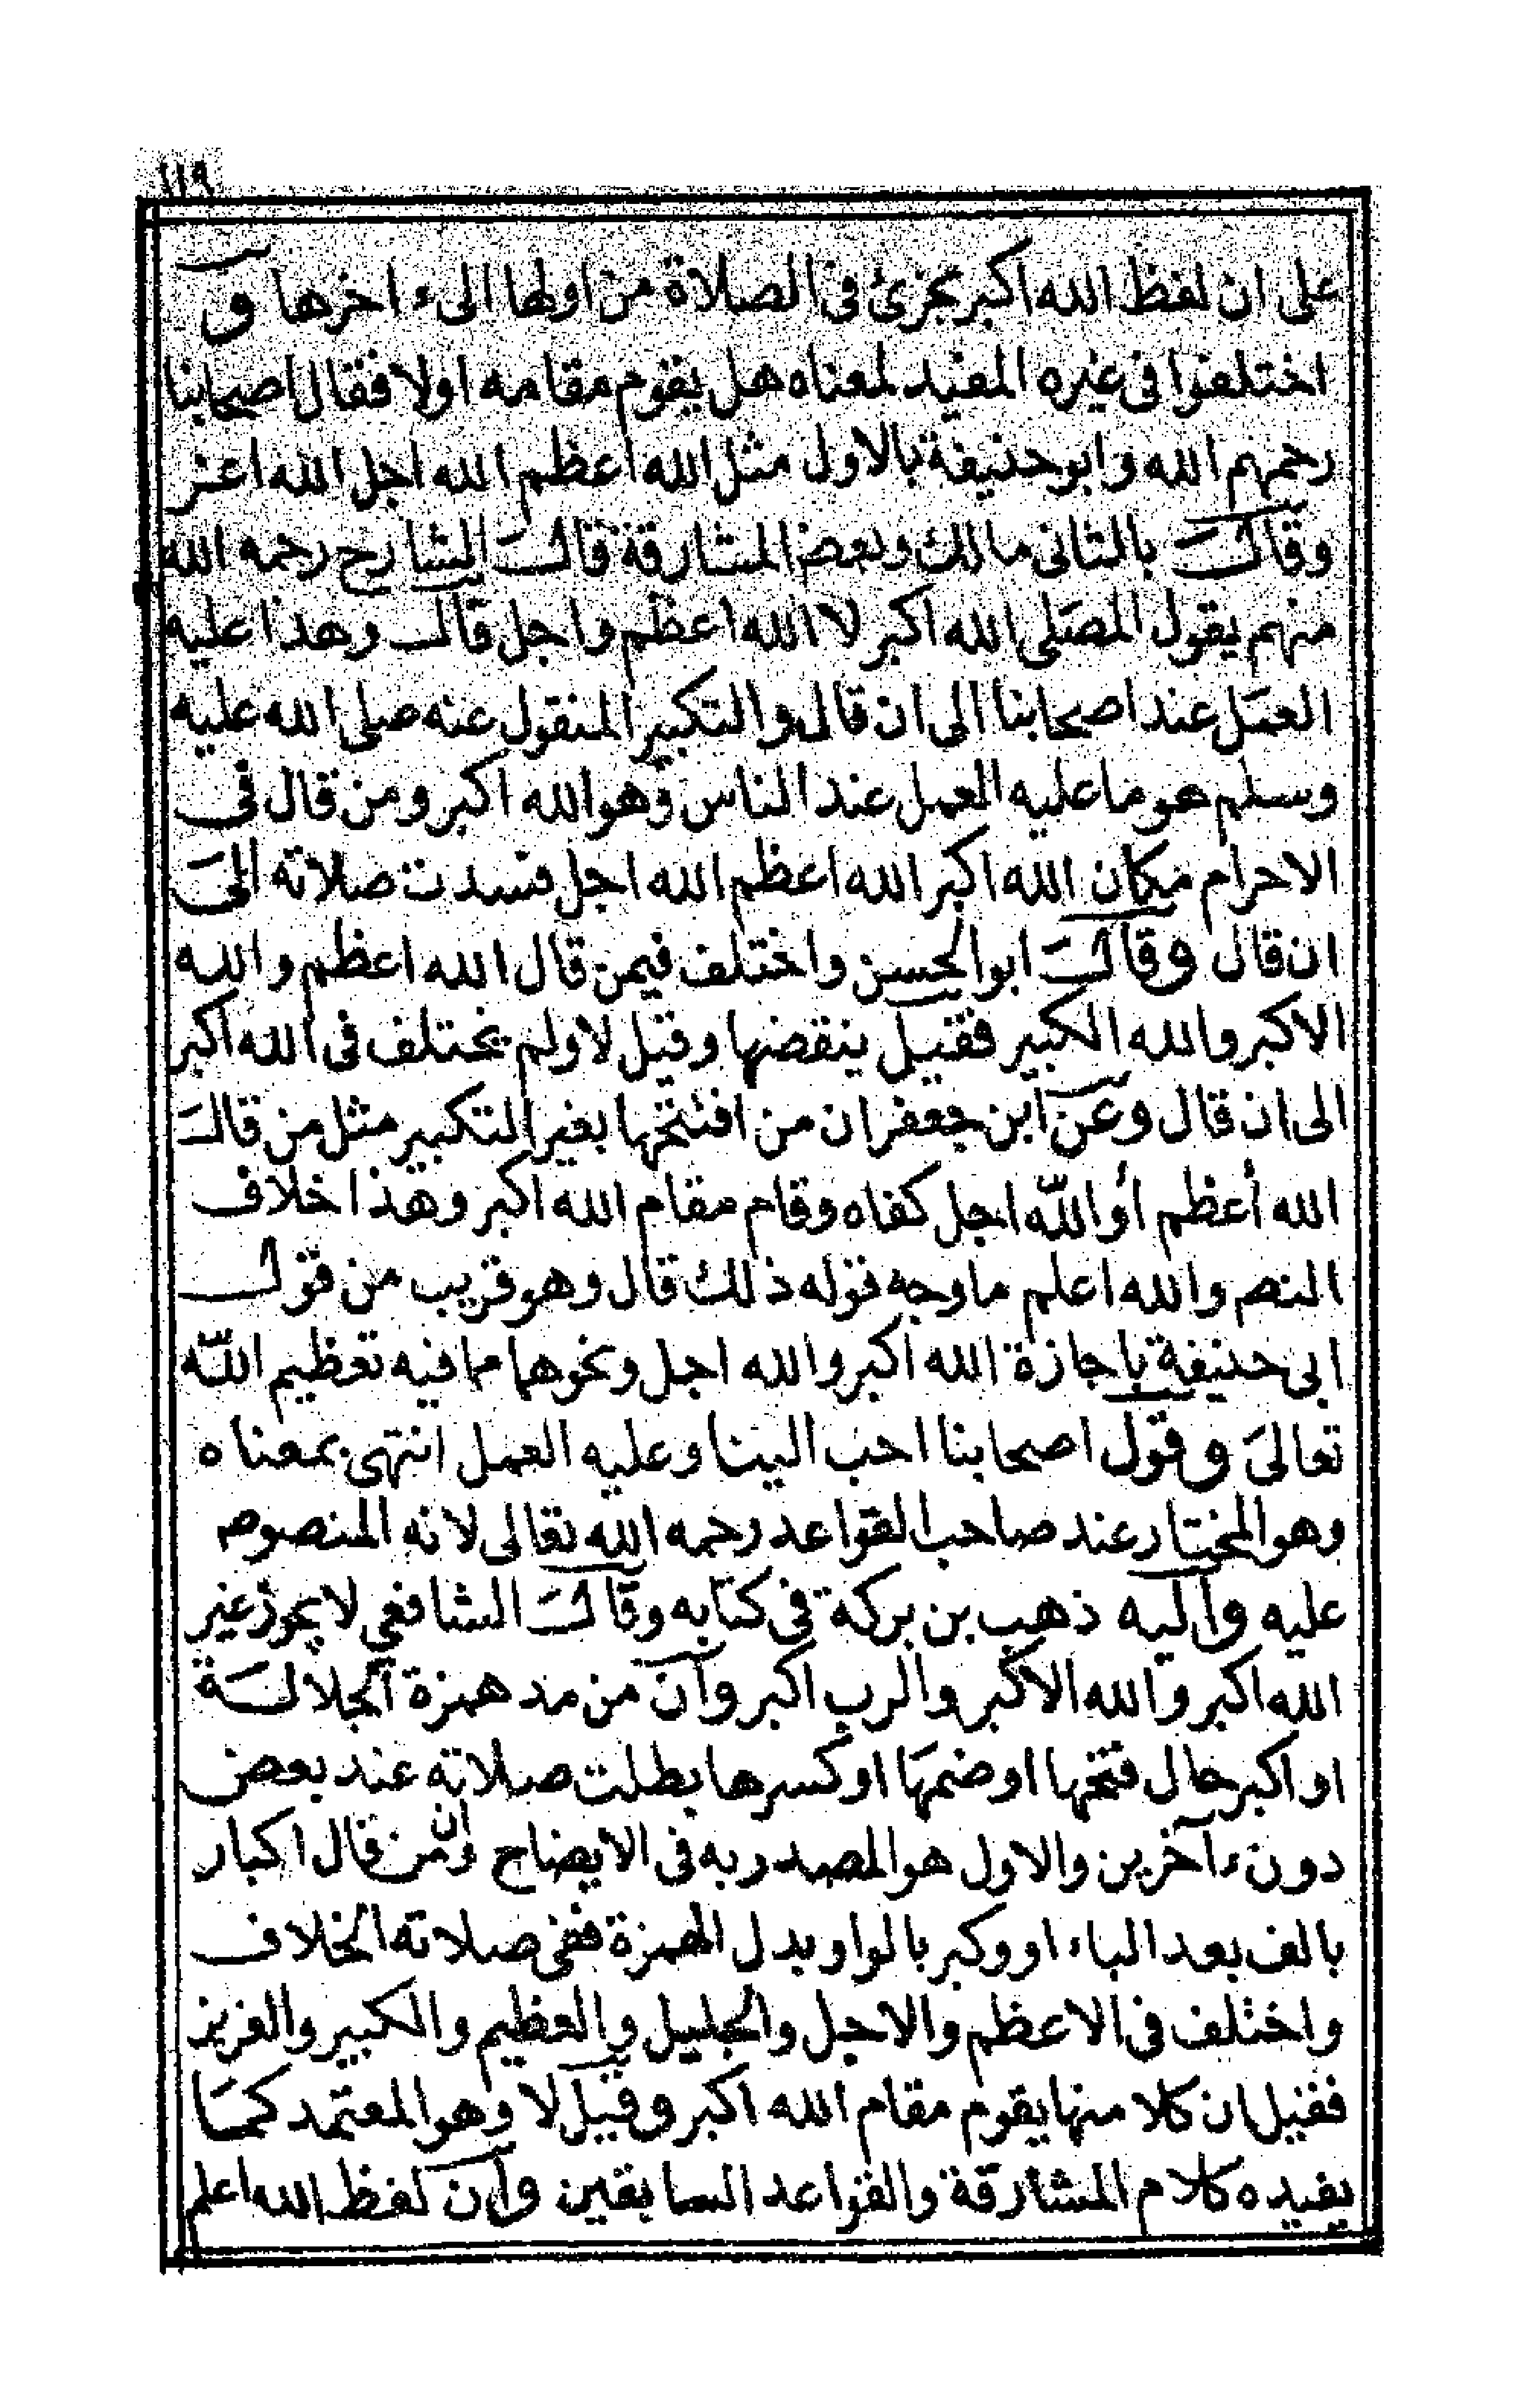 ١١٩
على ان لفظ الله اكبر يجزئ فى الصلاة من اولها الىء اخرها و
اختلفوا فى غيره المفيد لمعناه هل يقوم مقامه اولا فقال اصحابنا
رحمهم الله وابو حنيفة بالاول مثل الله اعظم الله اجل الله اعز
وقال بالثانى مالك وبعض المشارقة قال الشارح رحمه الله
منهم يقول المصلى الله اكبر لا الله اعظم واجل قال وهذا عليه
العمل عند اصحابنا الى ان قال والتكبير المنقول عنه صلى الله عليه
وسلم هو ما عليه العمل عند الناس وهو الله اكبر ومن قال فى
الاحرام مكان الله اكبر الله اعظم الله اجل فسدت صلاته الى
ان قال وقال ابو الحسن واختلف فيمن قال الله اعظم والله
الاكبر والله الكبير فقيل ينقضها وقيل لا ولم يختلف فى الله اكبر
الى ان قال وعن ابن جعفر ان من افتتحها بغير التكبير مثل من قال
الله أعظم أو اللّه اجل كفاه وقام مقام الله اكبر وهذا خلاف
النص والله اعلم ما وجه قوله ذلك قال وهو قريب من قول
ابى حنيفة باجازة الله اكبر والله اجل ونحوهما مما فيه تعظيم اللّه
تعالى وقول اصحابنا احب الينا وعليه العمل انتهى بمعناه
وهو المختار عند صاحب القواعد رحمه الله تعالى لانه المنصوص
عليه واليه ذهب بن بركة فى كتابه وقال الشافعي لا يجوز غير
الله اكبر والله الاكبر والرب اكبر وان من مد همزة الجلالة
او اكبر حال فتحها او ضمها او كسرها بطلت صلاته عند بعض
دون ءآخرين والاول هو المصدر به فى الايضاح وأن من قال اكبار
بالف بعد الباء او وكبر بالواو بدل الهمزة ففى صلاته الخلاف
واختلف فى الاعظم والاجل والجليل والعظيم والكبير والعزيز
فقيل ان كلا منها يقوم مقام الله اكبر وقيل لا وهو المعتمد كما
يفيده كلام المشارقة والقواعد السابقين وان لفظ الله اعلم